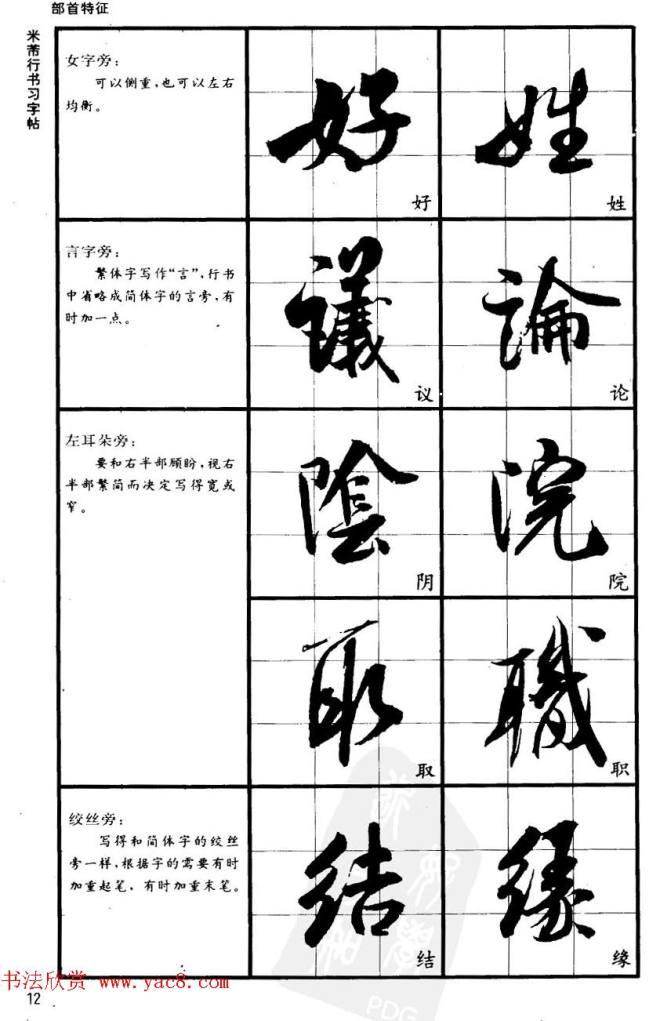 部首特征
米芾行书习字帖
女字旁：
可以侧重，也可以左右
均衡。
好
好
姓
姓
言字旁：
繁体字写作“言”，行书
中省略成简体字的言旁，有
时加一点。
議
议
論
论
左耳朵旁：
要和右半部顾盼，视右
半部繁简而决定写得宽或
窄。
陰
阴
院
院
取
取
職
职
绞丝旁：
写得和简体字的绞丝
旁一样，根据字的需要有时
加重起笔，有时加重末笔。
结
结
缘
缘
书法欣赏 www.yac8.com
12
PDG